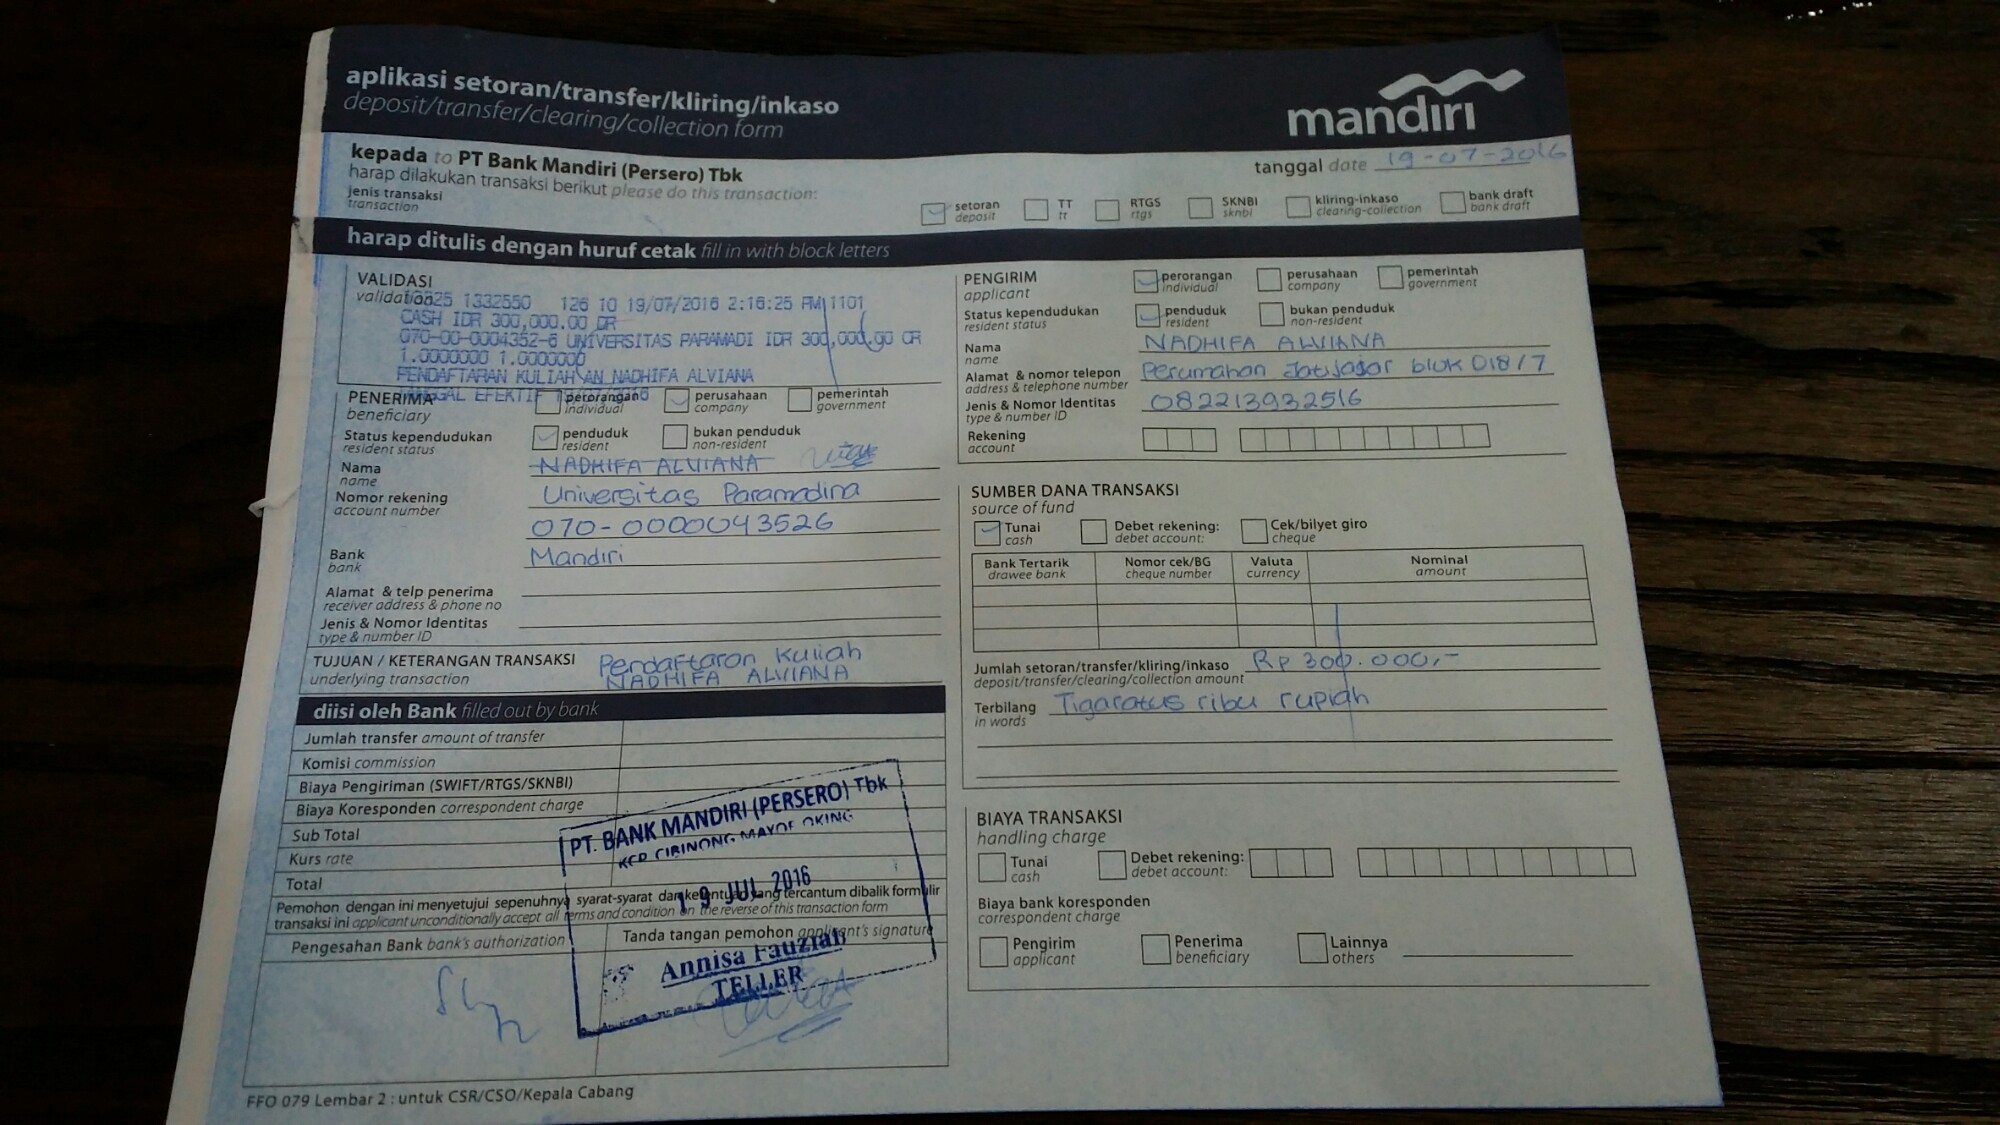 aplikasi setoran/transfer/kliring/inkaso
deposit/transfer/clearing/collection form
mandiri
kepada to PT Bank Mandiri (Persero) Tbk
tanggal date 19-07-2016
harap dilakukan transaksi berikut please do this transaction:
jenis transaksi
transaction
setoran
deposit
TT
tt
RTGS
rtgs
SKNBI
sknbi
kliring-inkaso
clearing-collection
bank draft
bank draft
harap ditulis dengan huruf cetak fill in with block letters
VALIDASI
validation
1332550 126 10 19/07/2016 2:16:25 PM 1101
CASH IDR 300,000.00 DR
070-00-0004352-6 UNIVERSITAS PARAMADI IDR 300,000.00 CR
1.0000000 1.0000000
PENDAFTARAN KULIAH AN NADHIFA ALVIANA
TANGGAL EFEKTIF
PENERIMA
beneficiary
perorangan
individual
perusahaan
company
pemerintah
government
Status kependudukan
resident status
penduduk
resident
bukan penduduk
non-resident
Nama
name
NADHIFA ALVIANA
Nomor rekening
account number
Universitas Paramadina
070-0000043526
Bank
bank
Mandiri
Alamat & telp penerima
receiver address & phone no
Jenis & Nomor Identitas
type & number ID
TUJUAN / KETERANGAN TRANSAKSI
underlying transaction
Pendaftaran Kuliah
NADHIFA ALVIANA
diisi oleh Bank filled out by bank
Jumlah transfer amount of transfer
Komisi commission
Biaya Pengiriman (SWIFT/RTGS/SKNBI)
Biaya Koresponden correspondent charge
Sub Total
Kurs rate
Total
Pemohon dengan ini menyetujui sepenuhnya syarat-syarat dan ketentuan yang tercantum dibalik formulir
transaksi ini applicant unconditionally accept all terms and condition on the reverse of this transaction form
Pengesahan Bank bank's authorization
Tanda tangan pemohon applicant's signature
PT. BANK MANDIRI (PERSERO) Tbk
KCP CIBINONG MAYOR OKING
19 JUL 2016
Annisa Fauziah
TELLER
FFO 079 Lembar 2 : untuk CSR/CSO/Kepala Cabang
PENGIRIM
applicant
perorangan
individual
perusahaan
company
pemerintah
government
Status kependudukan
resident status
penduduk
resident
bukan penduduk
non-resident
Nama
name
NADHIFA ALVIANA
Alamat & nomor telepon
address & telephone number
Perumahan Jatijajar blok D18/7
Jenis & Nomor Identitas
type & number ID
082213932516
Rekening
account
SUMBER DANA TRANSAKSI
source of fund
Tunai
cash
Debet rekening:
debet account:
Cek/bilyet giro
cheque
Bank Tertarik
drawee bank
Nomor cek/BG
cheque number
Valuta
currency
Nominal
amount
Jumlah setoran/transfer/kliring/inkaso
deposit/transfer/clearing/collection amount
Rp 300.000,-
Terbilang
in words
Tigaratus ribu rupiah
BIAYA TRANSAKSI
handling charge
Tunai
cash
Debet rekening:
debet account:
Biaya bank koresponden
correspondent charge
Pengirim
applicant
Penerima
beneficiary
Lainnya
others